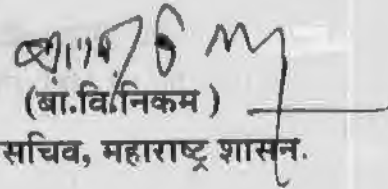 (बा.वि.निकम )
सचिव, महाराष्ट्र शासन.